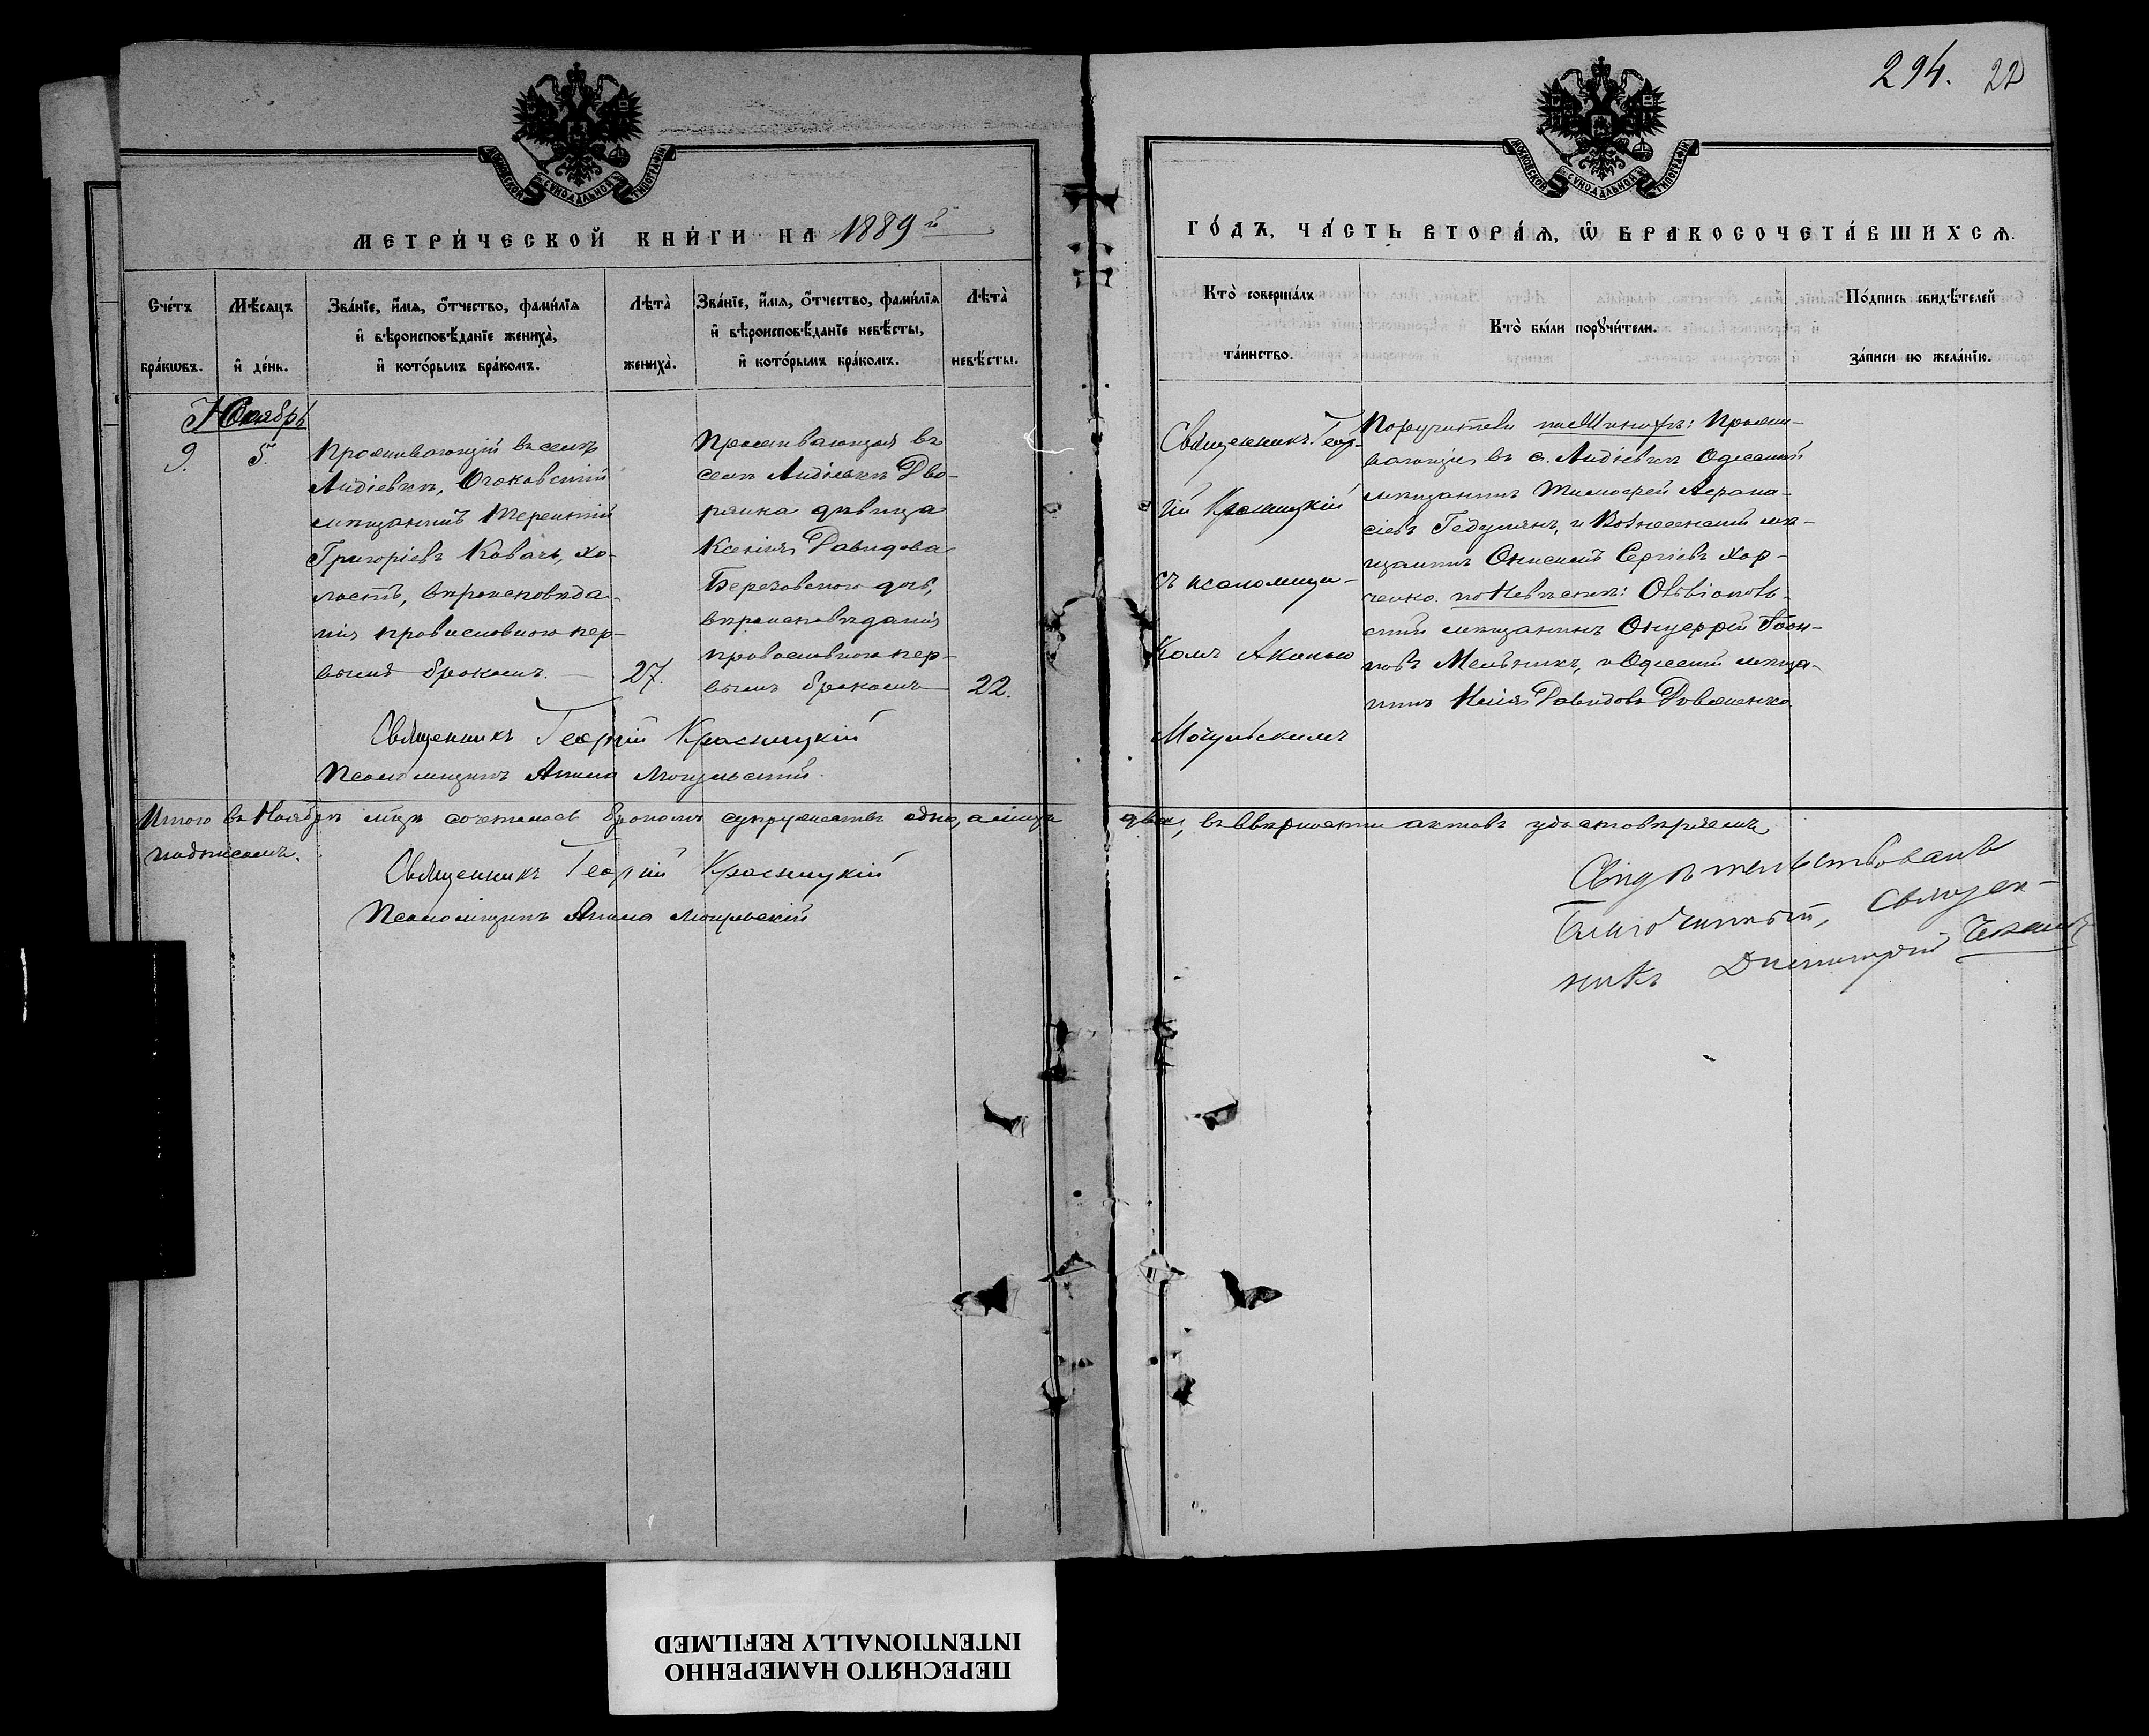 294. 22
МОСКОВСКОЙ СУНОДАЛЬНОЙ ТИПОГРАФІИ
МОСКОВСКОЙ СУНОДАЛЬНОЙ ТИПОГРАФІИ
МЕТРИ́ЧЕСКОЙ КНИ́ГИ НА 1889й
ГО́ДЪ, ЧА́СТЬ ВТОРА́Ѧ, Ѽ БРАКОСОЧЕТА́ВШИХСѦ.
Сче́тъ бра́кѡвъ.
Мѣ́сяцъ и҆ де́нь.
Зва́нїе, и҆́мя, ѻ҆́тчество, фами́лїя
и҆ вѣроисповѣ́данїе жениха̀,
и҆ кото́рымъ бра́комъ.
Лѣта̀ жениха̀.
Зва́нїе, и҆́мя, ѻ҆́тчество, фами́лїя
и҆ вѣроисповѣ́данїе невѣ́сты,
и҆ кото́рымъ бра́комъ.
Лѣта̀ невѣ́сты.
Кто̀ соверша́лъ
та́инство.
Кто̀ бы́ли порꙋчи́тели.
По́дпись свидѣ́телей
за́писи по жела́нїю.
Ноябрь
9. 5.
Проживающій въ селѣ
Лидіевкѣ, Очаковскій
мѣщанинъ Терентій
Григоріевъ Ковачъ, хо-
лостъ, вѣроисповѣда-
нія православного пер-
вымъ бракомъ. — 27.
Проживающая въ
селѣ Лидіевкѣ Дво-
рянка дѣвица
Ксенія Давидова
Березовского дочь,
вѣроисповѣданія
православного пер-
вымъ бракомъ 22.
Священникъ Геор-
гій Красницкій
съ псаломщи-
комъ Акилою
Могульскимъ
Поручители по Женихѣ: Прожи-
вающіе въ с. Лидіевкѣ Одесскій
мѣщанинъ Тимофей Афана-
сіевъ, и Вознесенскій мѣ-
щанинъ Онисимъ Сергіевъ Хар-
ченко. по Невѣстѣ:
скій мѣщанинъ Онуфрій
Мельникъ, и Одесскій мѣща-
нинъ Давидовъ
Священникъ Георгій Красницкій
Псаломщикъ Акила Могульскій
Итого въ Ноябрѣ мцѣ сочеталось бракомъ супружествъ одно, а лицъ два, въ вѣрности актовъ удостовѣряемъ
подписомъ.
Священникъ Георгій Красницкій
Псаломщикъ Акила Могульскій
Свидѣтельствовалъ
Благочинный, Священ-
никъ Димитрій
ПЕРЕСНЯТО НАМЕРЕННО
INTENTIONALLY REFILMED